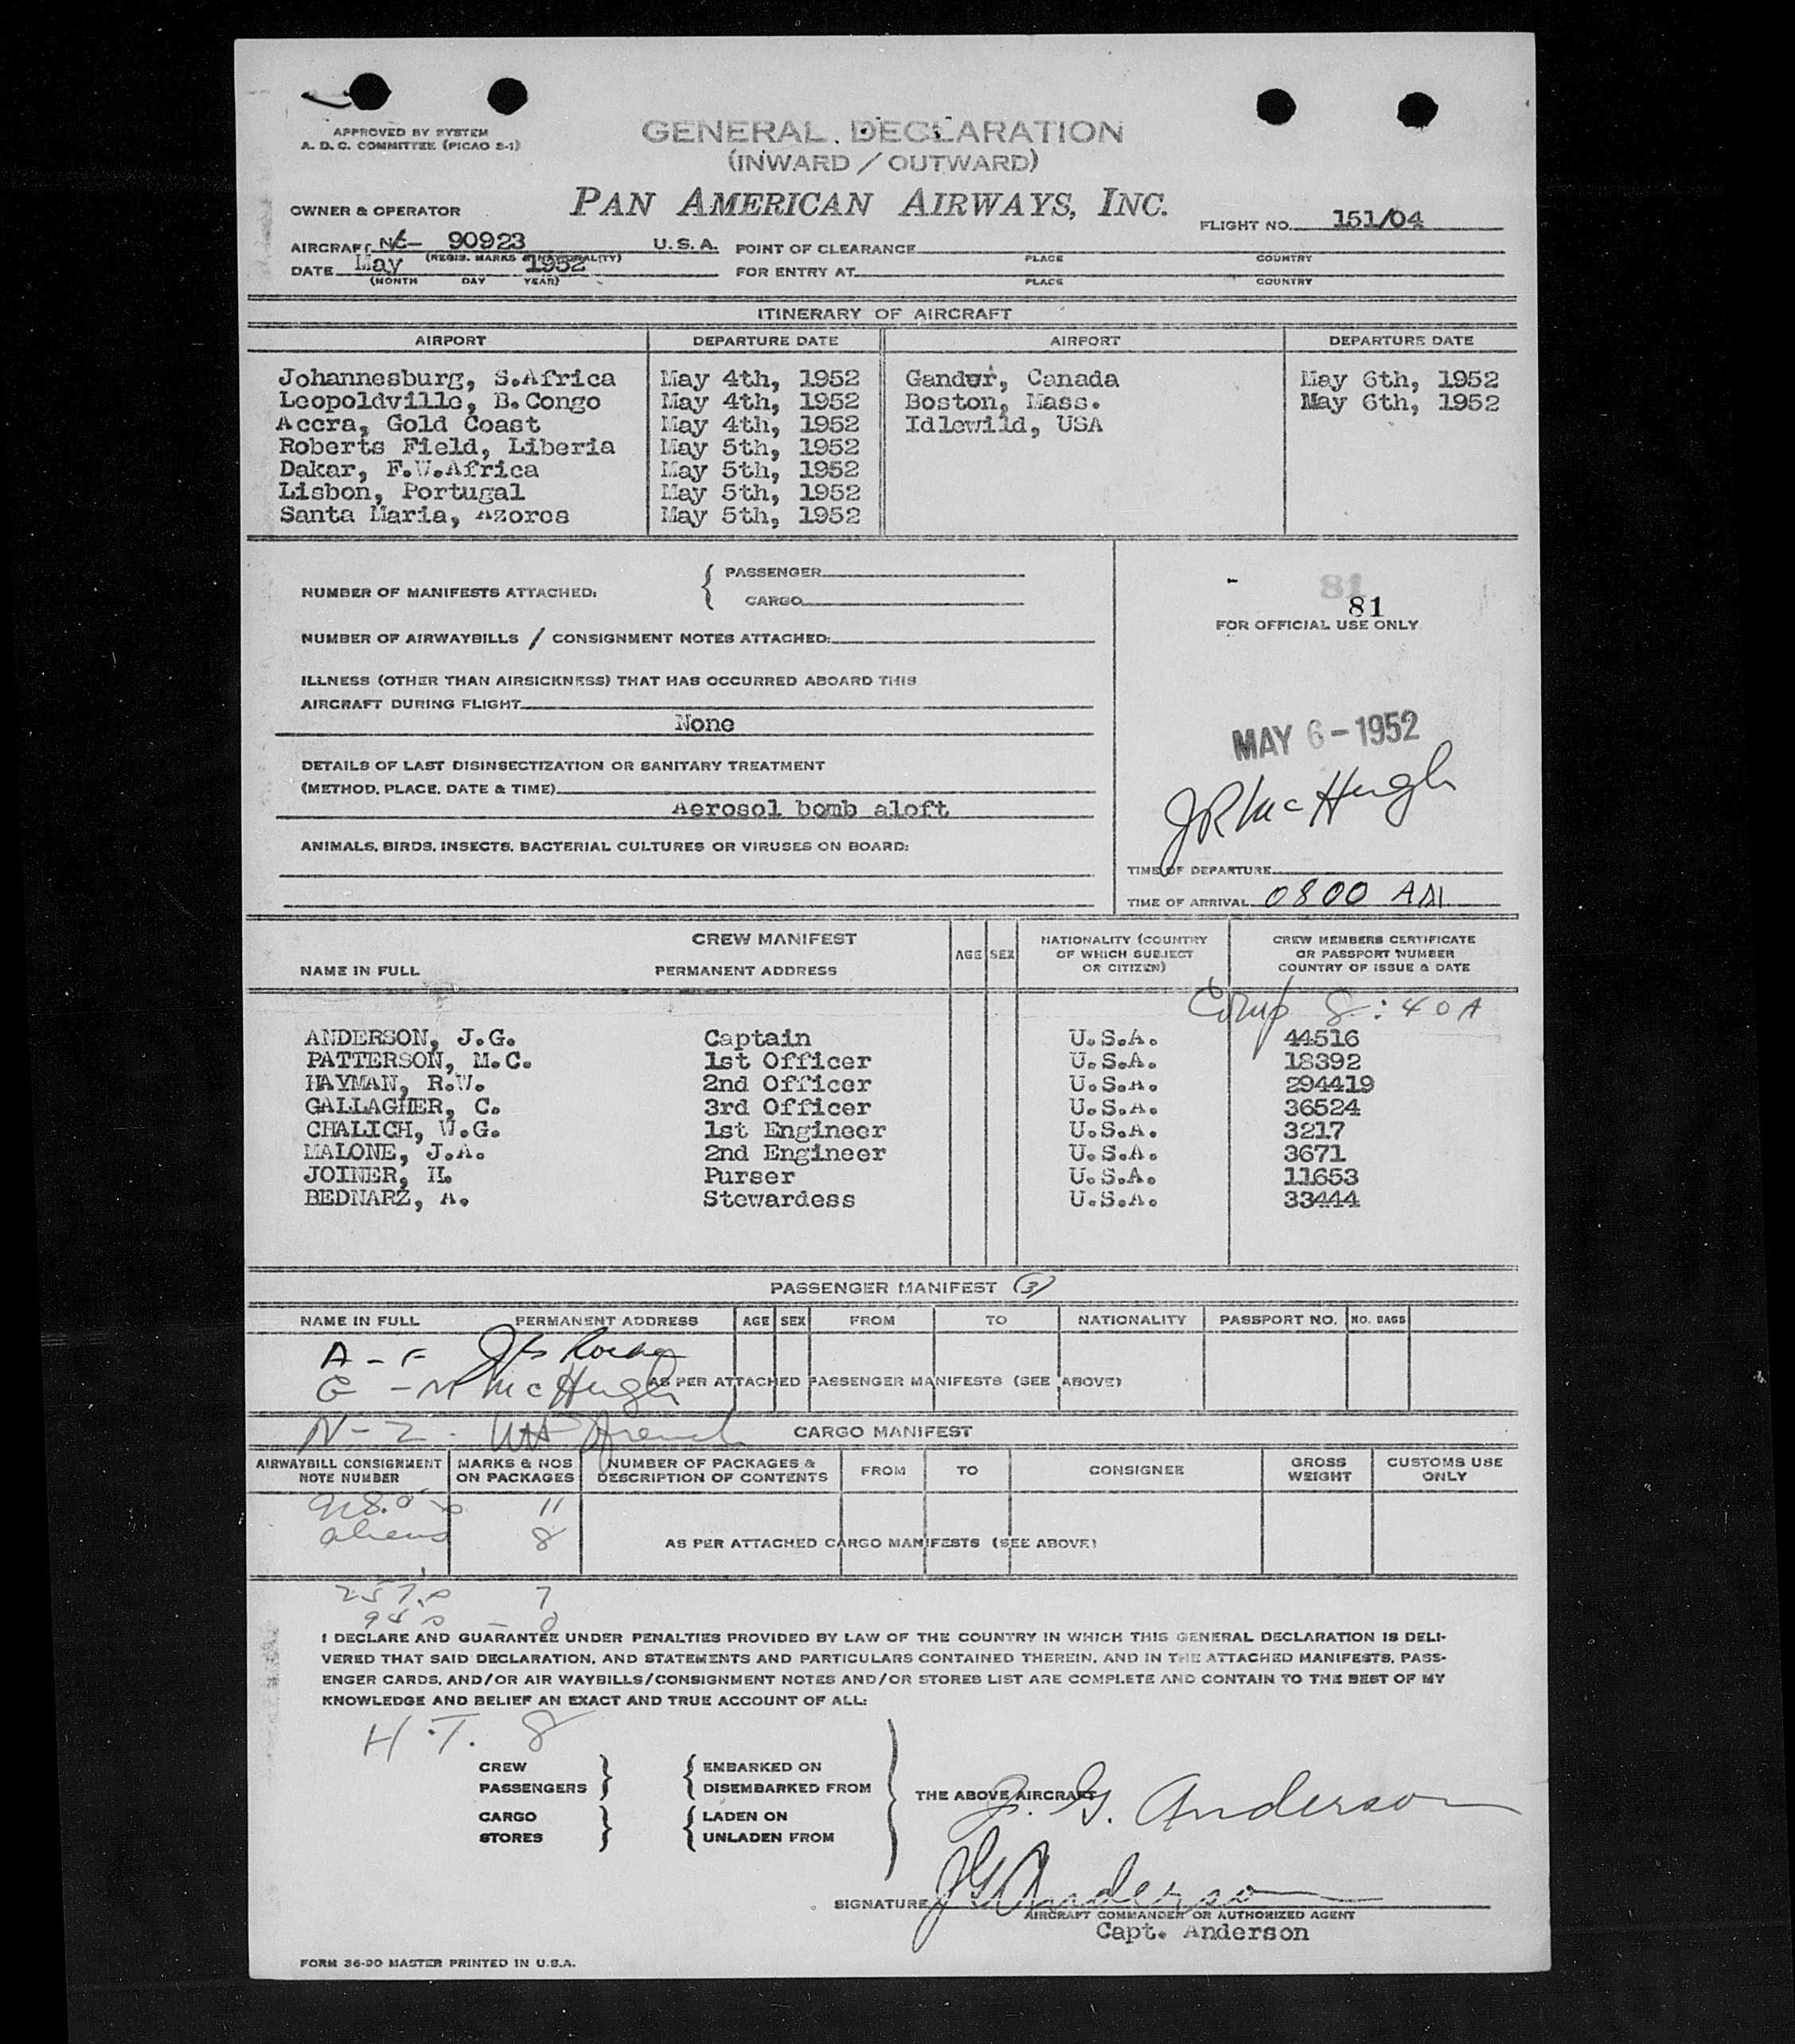 APPROVED BY SYSTEM
A. D. C. COMMITTEE (PICAO 2-1)
GENERAL DECLARATION
(INWARD / OUTWARD)
OWNER & OPERATOR PAN AMERICAN AIRWAYS, INC. FLIGHT NO. 151/04
AIRCRAFT NC- 90923 U.S.A. POINT OF CLEARANCE
(REGIS. MARKS & NATIONALITY) PLACE COUNTRY
DATE May 1952 FOR ENTRY AT
(MONTH DAY YEAR) PLACE COUNTRY
ITINERARY OF AIRCRAFT
AIRPORT DEPARTURE DATE AIRPORT DEPARTURE DATE
Johannesburg, S.Africa May 4th, 1952 Gander, Canada May 6th, 1952
Leopoldville, B.Congo May 4th, 1952 Boston, Mass. May 6th, 1952
Accra, Gold Coast May 4th, 1952 Idlewild, USA
Roberts Field, Liberia May 5th, 1952
Dakar, F.W.Africa May 5th, 1952
Lisbon, Portugal May 5th, 1952
Santa Maria, Azores May 5th, 1952
NUMBER OF MANIFESTS ATTACHED: { PASSENGER
CARGO
81
81
FOR OFFICIAL USE ONLY
NUMBER OF AIRWAYBILLS / CONSIGNMENT NOTES ATTACHED:
ILLNESS (OTHER THAN AIRSICKNESS) THAT HAS OCCURRED ABOARD THIS
AIRCRAFT DURING FLIGHT
None
MAY 6-1952
DETAILS OF LAST DISINSECTIZATION OR SANITARY TREATMENT
(METHOD, PLACE, DATE & TIME)
Aerosol bomb aloft
JR McHugh
ANIMALS, BIRDS, INSECTS, BACTERIAL CULTURES OR VIRUSES ON BOARD:
TIME OF DEPARTURE
TIME OF ARRIVAL 0800 AM
CREW MANIFEST
NAME IN FULL PERMANENT ADDRESS AGE SEX NATIONALITY (COUNTRY OF WHICH SUBJECT OR CITIZEN) CREW MEMBERS CERTIFICATE OR PASSPORT NUMBER COUNTRY OF ISSUE & DATE
Comp 8:40A
ANDERSON, J.G. Captain U.S.A. 44516
PATTERSON, M.C. 1st Officer U.S.A. 18392
HAYMAN, R.W. 2nd Officer U.S.A. 294419
GALLAGHER, C. 3rd Officer U.S.A. 36524
CHALICH, W.G. 1st Engineer U.S.A. 3217
MALONE, J.A. 2nd Engineer U.S.A. 3671
JOINER, H. Purser U.S.A. 11653
BEDNARZ, A. Stewardess U.S.A. 33444
PASSENGER MANIFEST (3)
NAME IN FULL PERMANENT ADDRESS AGE SEX FROM TO NATIONALITY PASSPORT NO. NO. BAGS
A - F
G - M McHugh
AS PER ATTACHED PASSENGER MANIFESTS (SEE ABOVE)
N - Z - French
CARGO MANIFEST
AIRWAYBILL CONSIGNMENT NOTE NUMBER MARKS & NOS ON PACKAGES NUMBER OF PACKAGES & DESCRIPTION OF CONTENTS FROM TO CONSIGNEE GROSS WEIGHT CUSTOMS USE ONLY
11
aliens 8
AS PER ATTACHED CARGO MANIFESTS (SEE ABOVE)
7
0
I DECLARE AND GUARANTEE UNDER PENALTIES PROVIDED BY LAW OF THE COUNTRY IN WHICH THIS GENERAL DECLARATION IS DELI-
VERED THAT SAID DECLARATION, AND STATEMENTS AND PARTICULARS CONTAINED THEREIN, AND IN THE ATTACHED MANIFESTS, PASS-
ENGER CARDS, AND/OR AIR WAYBILLS/CONSIGNMENT NOTES AND/OR STORES LIST ARE COMPLETE AND CONTAIN TO THE BEST OF MY
KNOWLEDGE AND BELIEF AN EXACT AND TRUE ACCOUNT OF ALL:
H.T. 8
CREW } { EMBARKED ON
PASSENGERS } { DISEMBARKED FROM
THE ABOVE AIRCRAFT J. G. Anderson
CARGO } { LADEN ON
STORES } { UNLADEN FROM
SIGNATURE JG Anderson
AIRCRAFT COMMANDER OR AUTHORIZED AGENT
Capt. Anderson
FORM 36-90 MASTER PRINTED IN U.S.A.